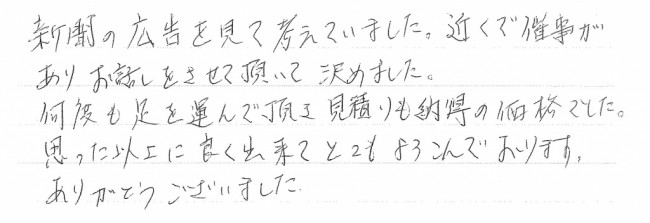 新聞の広告を見て考えていました。近くで催事が
ありお話しをさせて頂いて決めました。
何度も足を運んで頂き見積りも納得の価格でした。
思った以上に良く出来てとてもよろこんでおります。
ありがとうございました